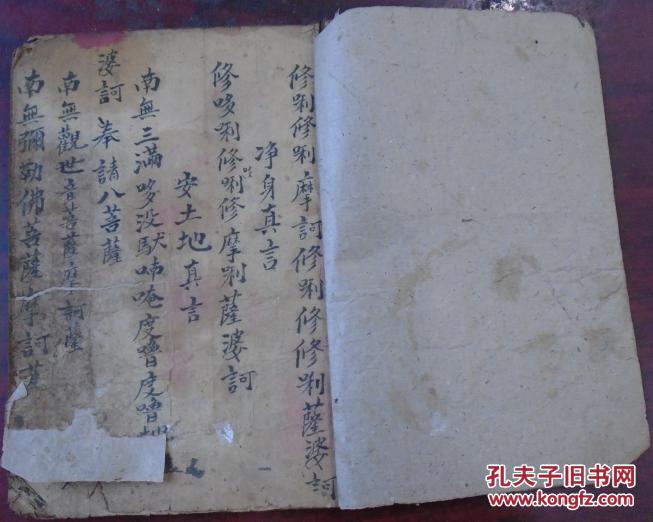 修唎修唎摩訶修唎修修唎薩婆訶
净身真言
修哆唎修唎修摩唎薩婆訶
安土地真言
南無三滿哆没馱喃唵度嚕度嚕
婆訶 奉請八菩薩
南無觀世音菩薩摩訶薩
南無彌勒佛菩薩摩訶
孔夫子旧书网
www.kongfz.com